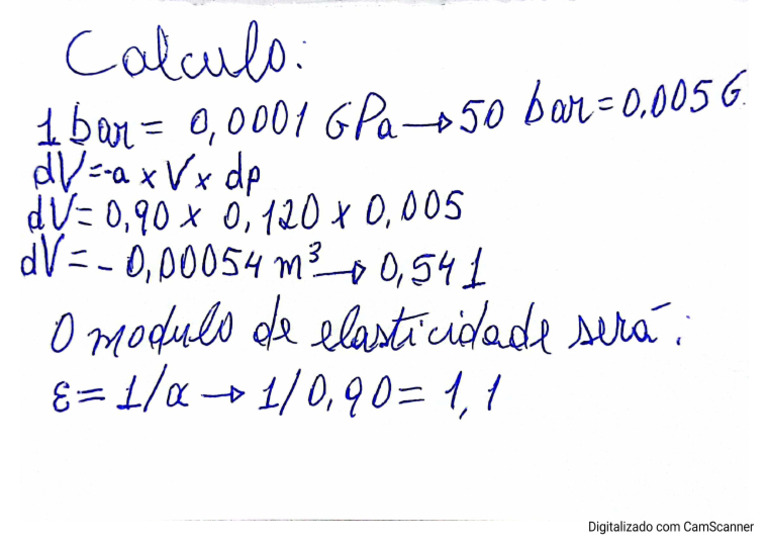 Calculo:
1 bar = 0,0001 GPa → 50 bar = 0,005 G
dV = -a x V x dp
dV = 0,90 x 0,120 x 0,005
dV = - 0,00054 m³ → 0,54 l
O modulo de elasticidade será:
ε = 1/α → 1/0,90 = 1,1
Digitalizado com CamScanner